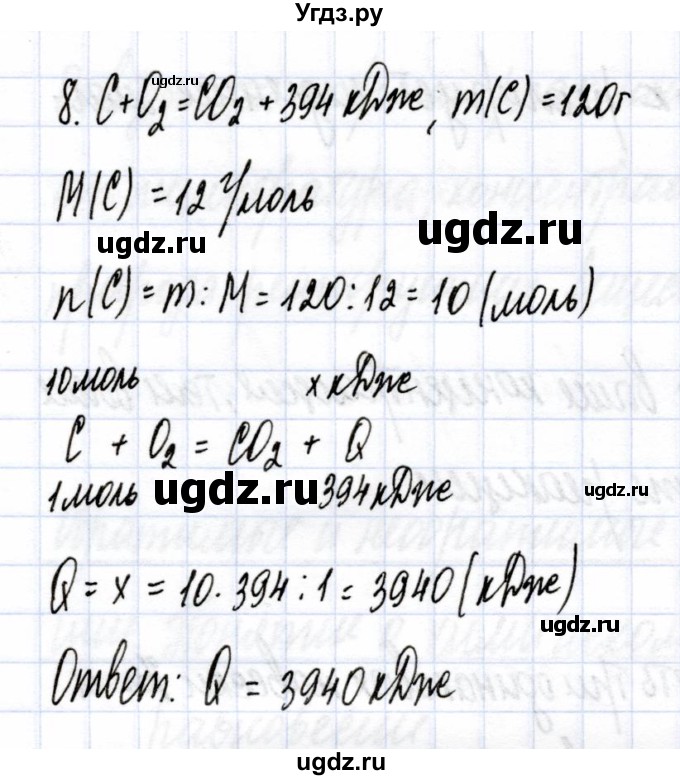 Угдз.ру
ugdz.ru
8. C+O₂=CO₂+394 кДже, m(C)=120г
M(C)=12 г/моль
ugdz.ru
ugdz.ru
n(C)=m:M=120:12=10(моль)
10моль x кДже
C + O₂ = CO₂ + Q
1моль 394кДже
ugdz.ru
ugdz.ru
Q=x=10·394:1=3940(кДже)
ugdz.ru
Ответ: Q=3940кДже
ugdz.ru